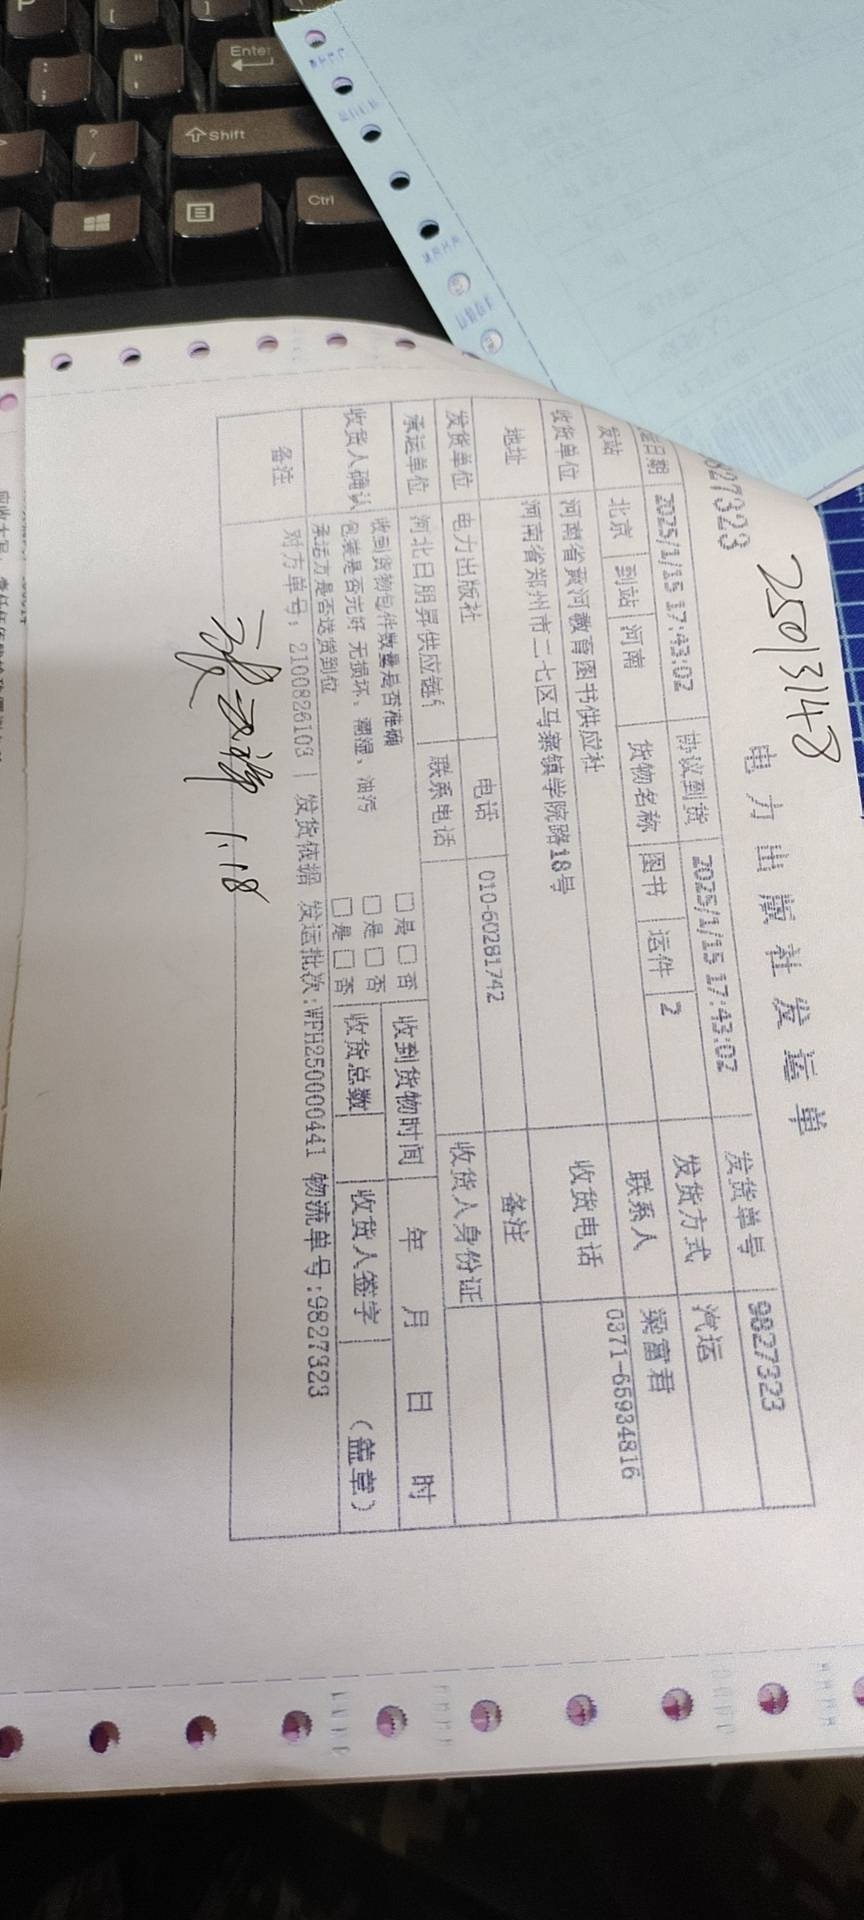 Enter
Shift
Ctrl
25013148
电力出版社发运单
827323
发货单号 9827323
日期 2025/1/15 17:43:02 协议到货 2025/1/15 17:43:02 发货方式 汽运
发站 北京 到站 河南 货物名称 图书 运件 2 联系人 梁富君
收货单位 河南省黄河教育图书供应社 收货电话 0371-65934816
地址 河南省郑州市二七区马寨镇学院路18号 备注
发货单位 电力出版社 电话 010-60281742 收货人身份证
承运单位 河北日朋昇供应链 联系电话
收货人确认 收到货物包件数量是否准确 □是 □否 收到货物时间 年 月 日 时
包装是否完好 无损坏、潮湿、油污 □是 □否 收货总数 收货人签字 (盖章)
承运方是否送货到位 □是 □否
备注 对方单号: 2100826103 | 发货依据 发运批次:WPH250000441 物流单号:9827323
1.18